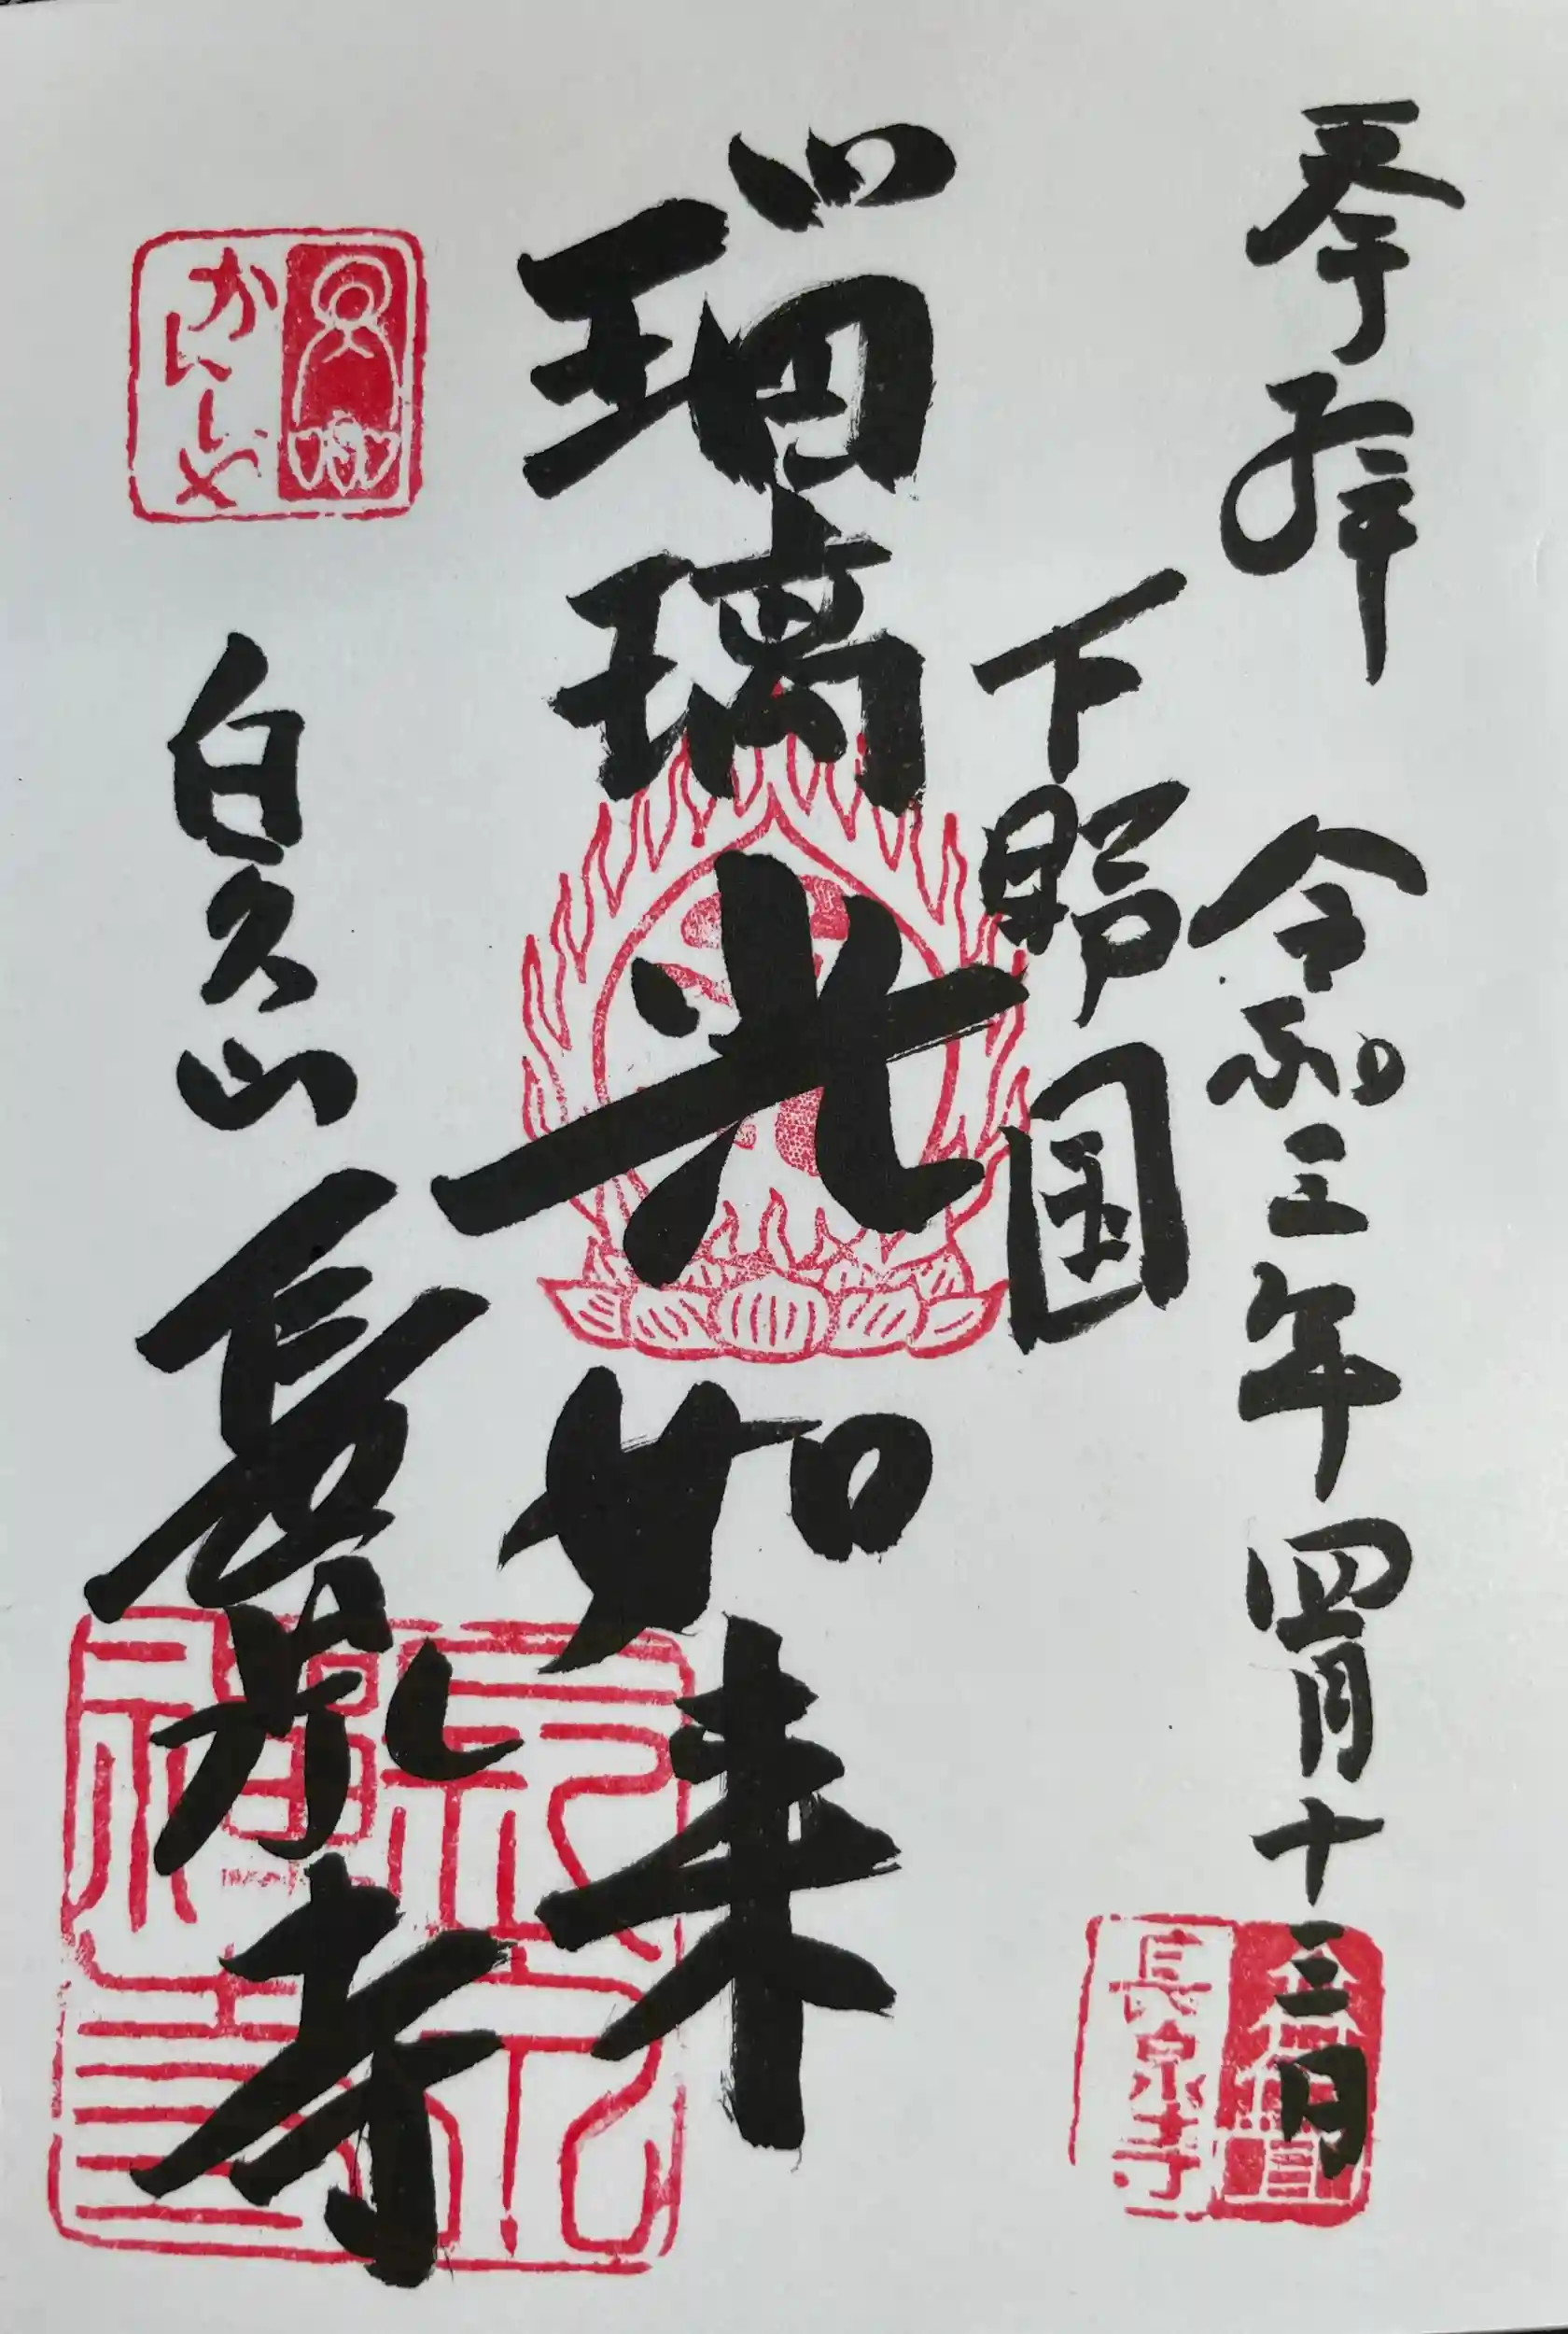 奉拝 令和三年四月十三日
下野国
瑠璃光如来
白久山 長泉寺
かんしゃ
長泉寺